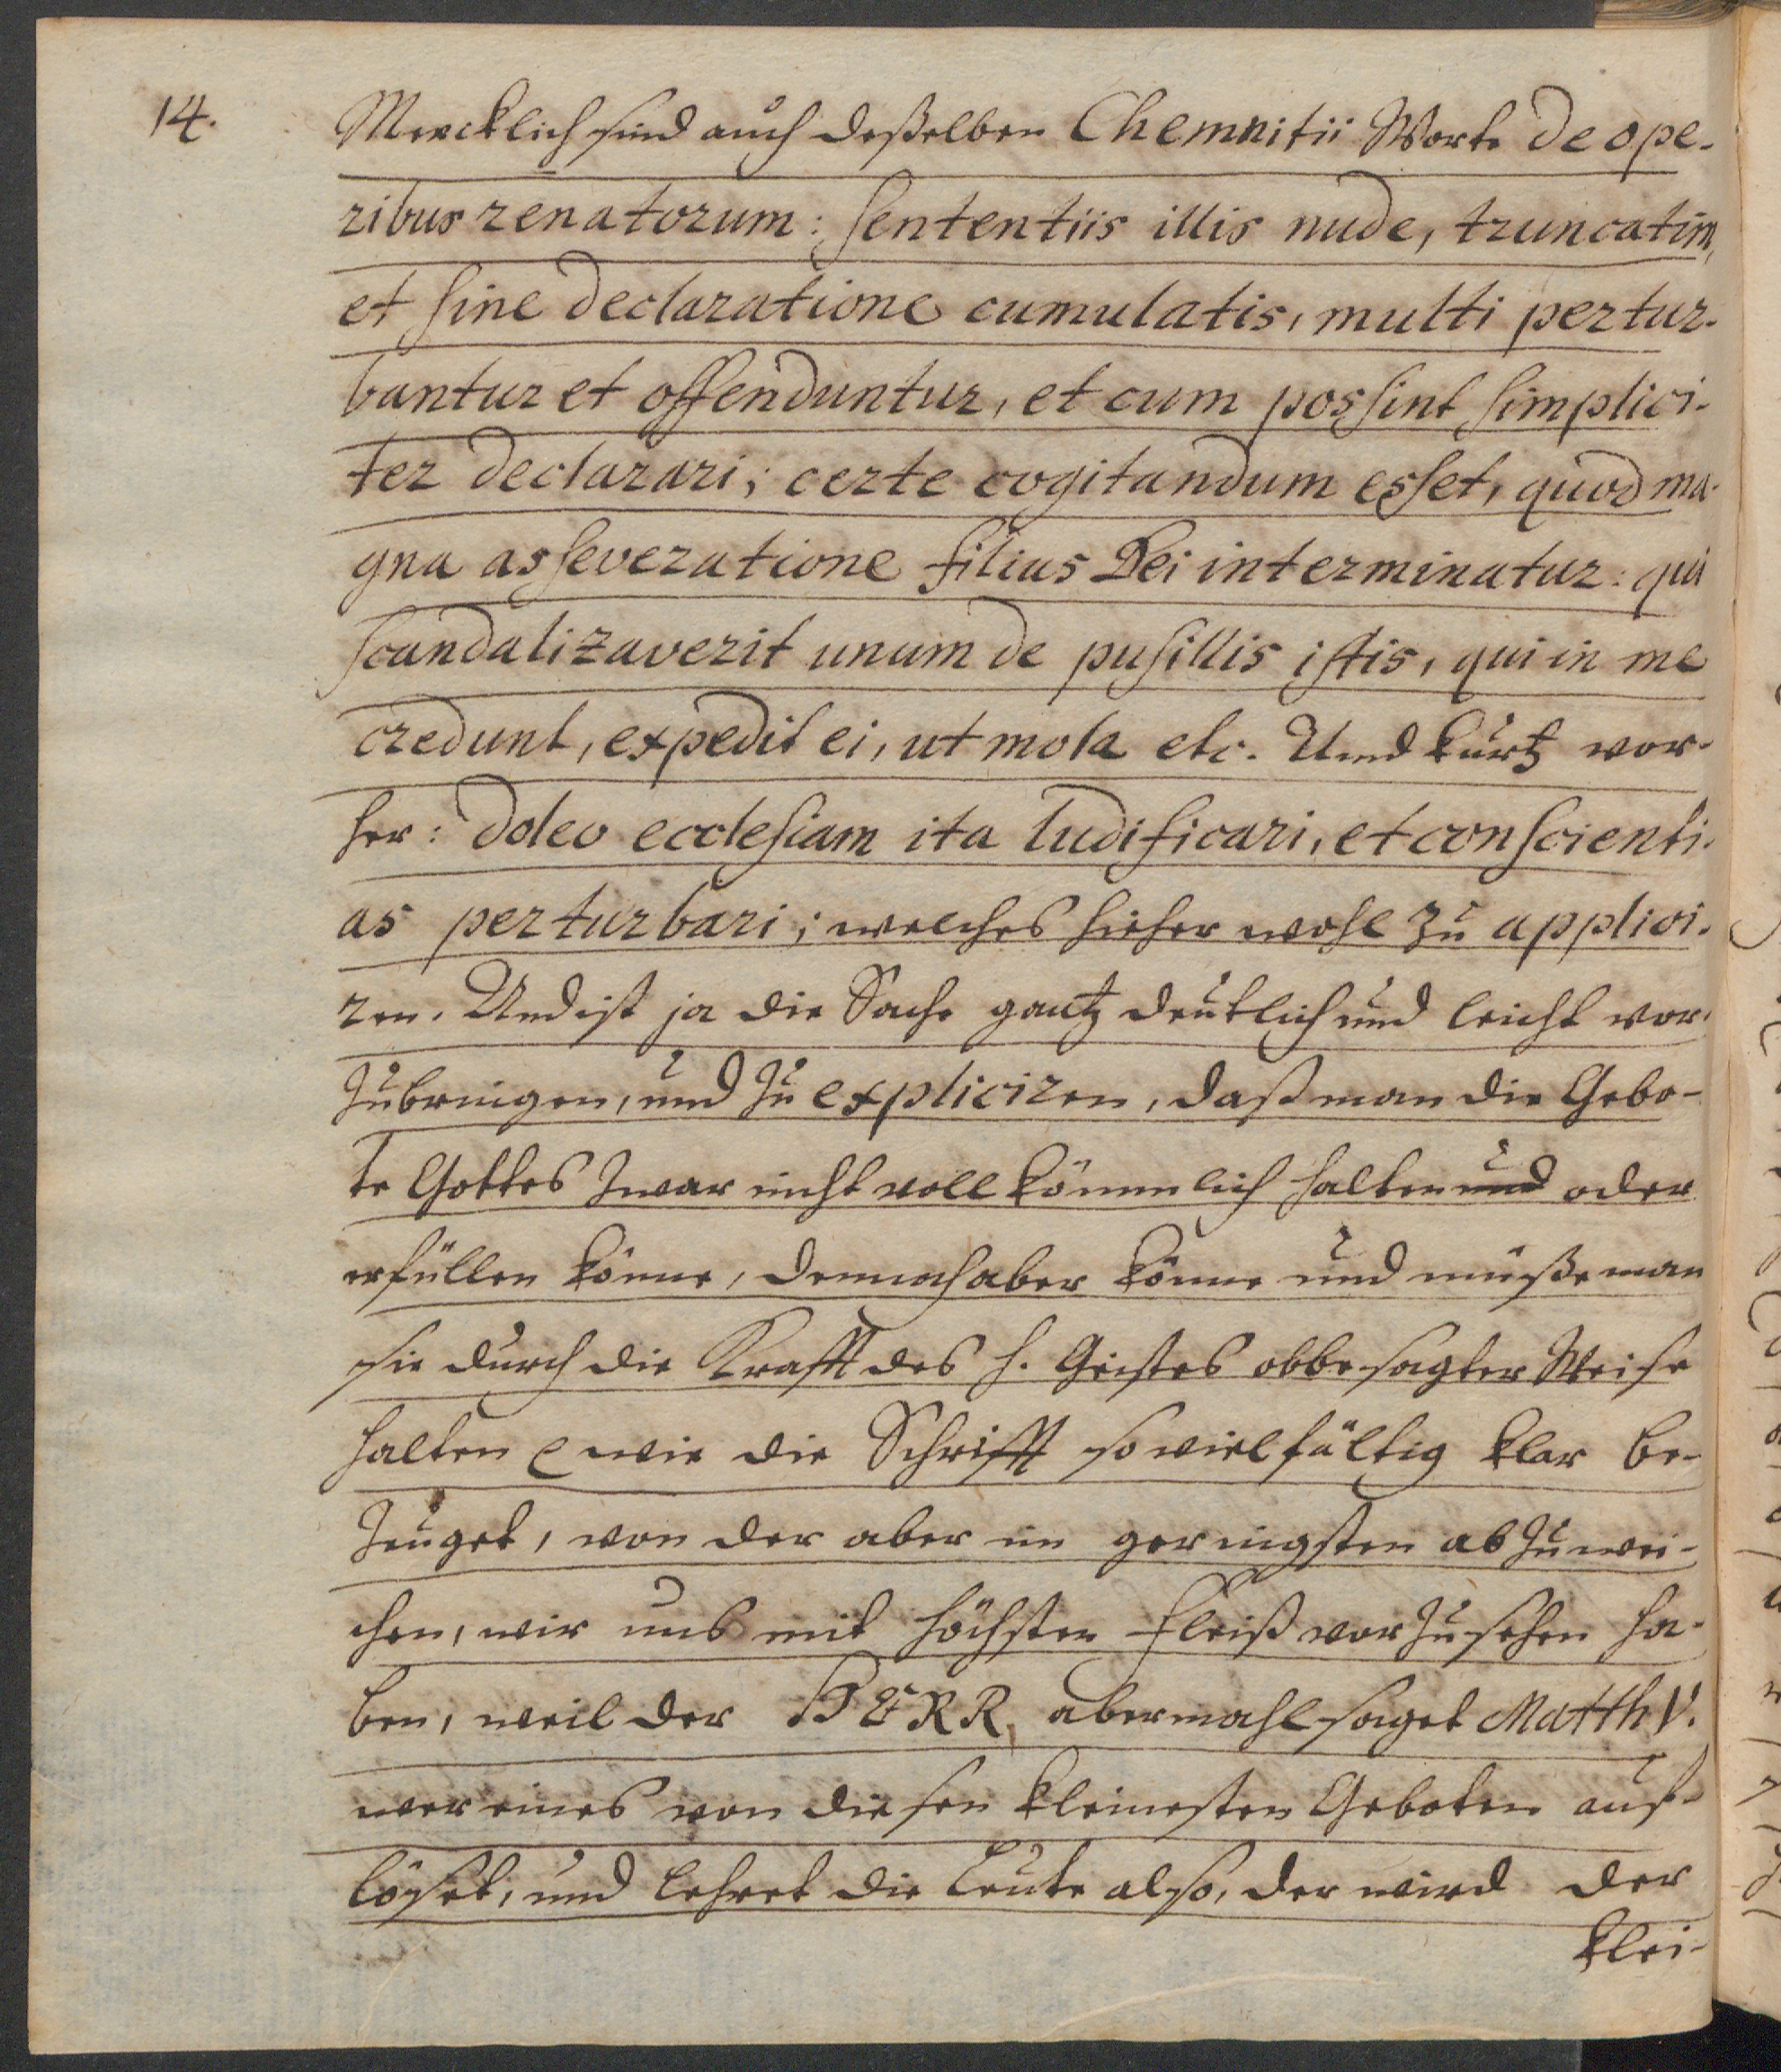 14.
Mercklich sind auch deßelben Chemnitii Worte de ope-
ribus renatorum: sententiis illis nude, truncatim,
et sine declaratione cumulatis, multi pertur-
bantur et offenduntur, et cum possint simplici-
ter declarari; certe cogitandum esset, quod ma-
gna asseveratione filius Dei interminatur: qui
scandalizaverit unum de pusillis istis, qui in me
credunt, expedit ei, ut mola etc. Und kurtz vor-
her: doleo ecclesiam ita ludificari, et conscienti-
as perturbari; welches hieher wohl zu applici-
ren. Und ist ja die Sache gantz deutlich und leicht vor-
zubringen, und zu expliciren, daß man die Gebo-
te Gottes zwar nicht vollkömmlich halten und oder
erfüllen könne, dennoch aber könne und müße man
sie durch die Krafft des h. Geistes obbesagter Weise
halten wie die Schrifft so vielfältig klar be-
zeuget, von der aber im geringsten abzuwei-
chen, wir uns mit höchsten Fleiß vorzusehen ha-
ben, weil der HERR abermahl saget Matth V.
wer eines von diesen kleinesten Geboten auf-
löset, und lehret die Leute also, der wird der
klei-